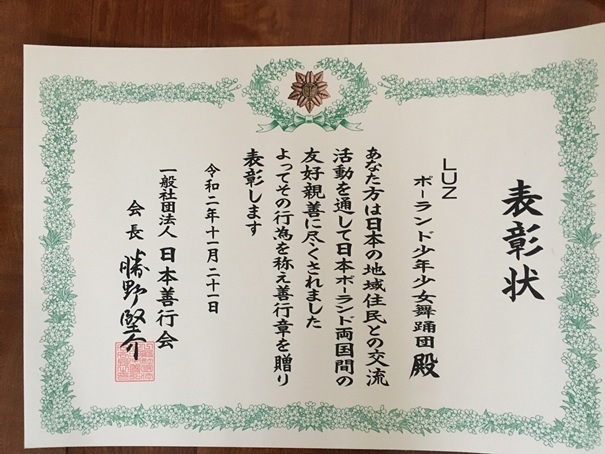 表彰状
LUZ
ポーランド少年少女舞踊団 殿
あなた方は日本の地域住民との交流
活動を通して日本ポーランド両国間の
友好親善に尽くされました
よってその行為を称え善行章を贈り
表彰します
令和二年十一月二十一日
一般社団法人 日本善行会
会長 勝野堅介